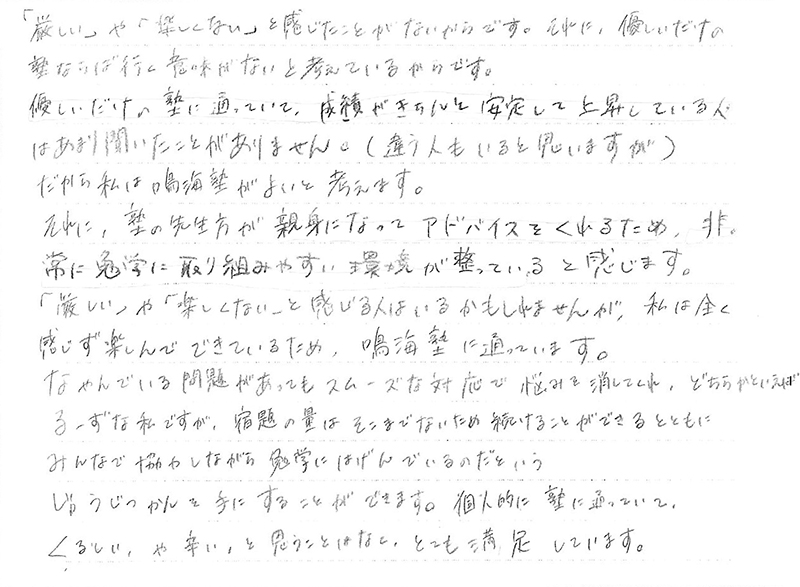 「厳しい」や「楽しくない」と感じたことがないからです。それに、優しいだけの
塾ならば行く意味がないと考えているからです。
優しいだけの塾に通っていて、成績がきちんと安定して上昇している人
はあまり聞いたことがありません。(違う人もいると思いますが)
だから私は鳴海塾がよいと考えます。
それに、塾の先生方が親身になってアドバイスをくれるため、非
常に勉学に取り組みやすい環境が整っていると感じます。
「厳しい」や「楽しくない」と感じる人はいるかもしれませんが、私は全く
感じず楽しんでできているため、鳴海塾に通っています。
なやんでいる問題があってもスムーズな対応で悩みを消してくれ、どちらかといえば
るーずな私ですが、宿題の量はそこまでないため続けることができるとともに
みんなで協力しながら勉学にはげんでいるのだという
じゅうじつかんを手にすることができます。個人的に塾に通っていて、
くるしい、や辛い、と思うことはなく、とても満足しています。